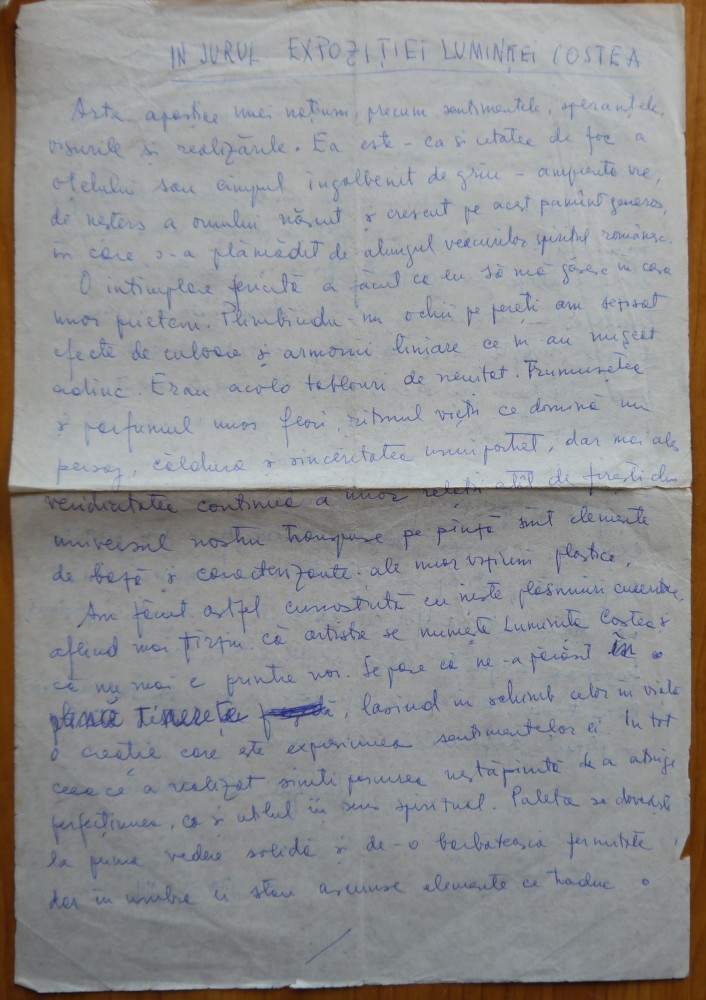 IN JURUL EXPOZIȚIEI LUMINIȚEI COSTEA
Arta aparține unei națiuni, precum sentimentele, speranțele,
visurile și realizările. Ea este - ca și cetatea de foc a
oțelului sau cîmpul îngălbenit de grîu - amprenta vie,
de neșters a omului născut și crescut pe acest pămînt generos,
în care s-a plămădit de-alungul veacurilor spiritul românesc.
O întîmplare fericită a făcut ca eu să mă găsesc în casa
unor prieteni. Plimbîndu-mi ochii pe pereți am sesizat
efecte de culoare și armonii liniare ce m-au mișcat
adînc. Erau acolo tablouri de neuitat. Frumusețea
și parfumul unor flori, ritmul vieții ce domină un
peisaj, căldura și sinceritatea unui portret, dar mai ales
veridicitatea continuă a unor relații atît de firești din
universul nostru transpuse pe pînză sînt elemente
de bază și caracterizante ale unor viziuni plastice.
Am făcut astfel cunoștință cu niște plăsmuiri
aflînd mai tîrziu că artista se numește Luminița Costea și
că nu mai e printre noi. Se pare că ne-a părăsit în
plină tinerețe, lăsînd în schimb celor în viață
o creație care este expresiunea sentimentelor ei. În tot
ceea ce a realizat simți pornirea nestăpînită de a atinge
perfecțiunea, ca și utilul în sens spiritual. Paleta se dovedește
la prima vedere solidă și de-o bărbătească fermitate,
dar în umbra ei stau ascunse elemente ce traduc o